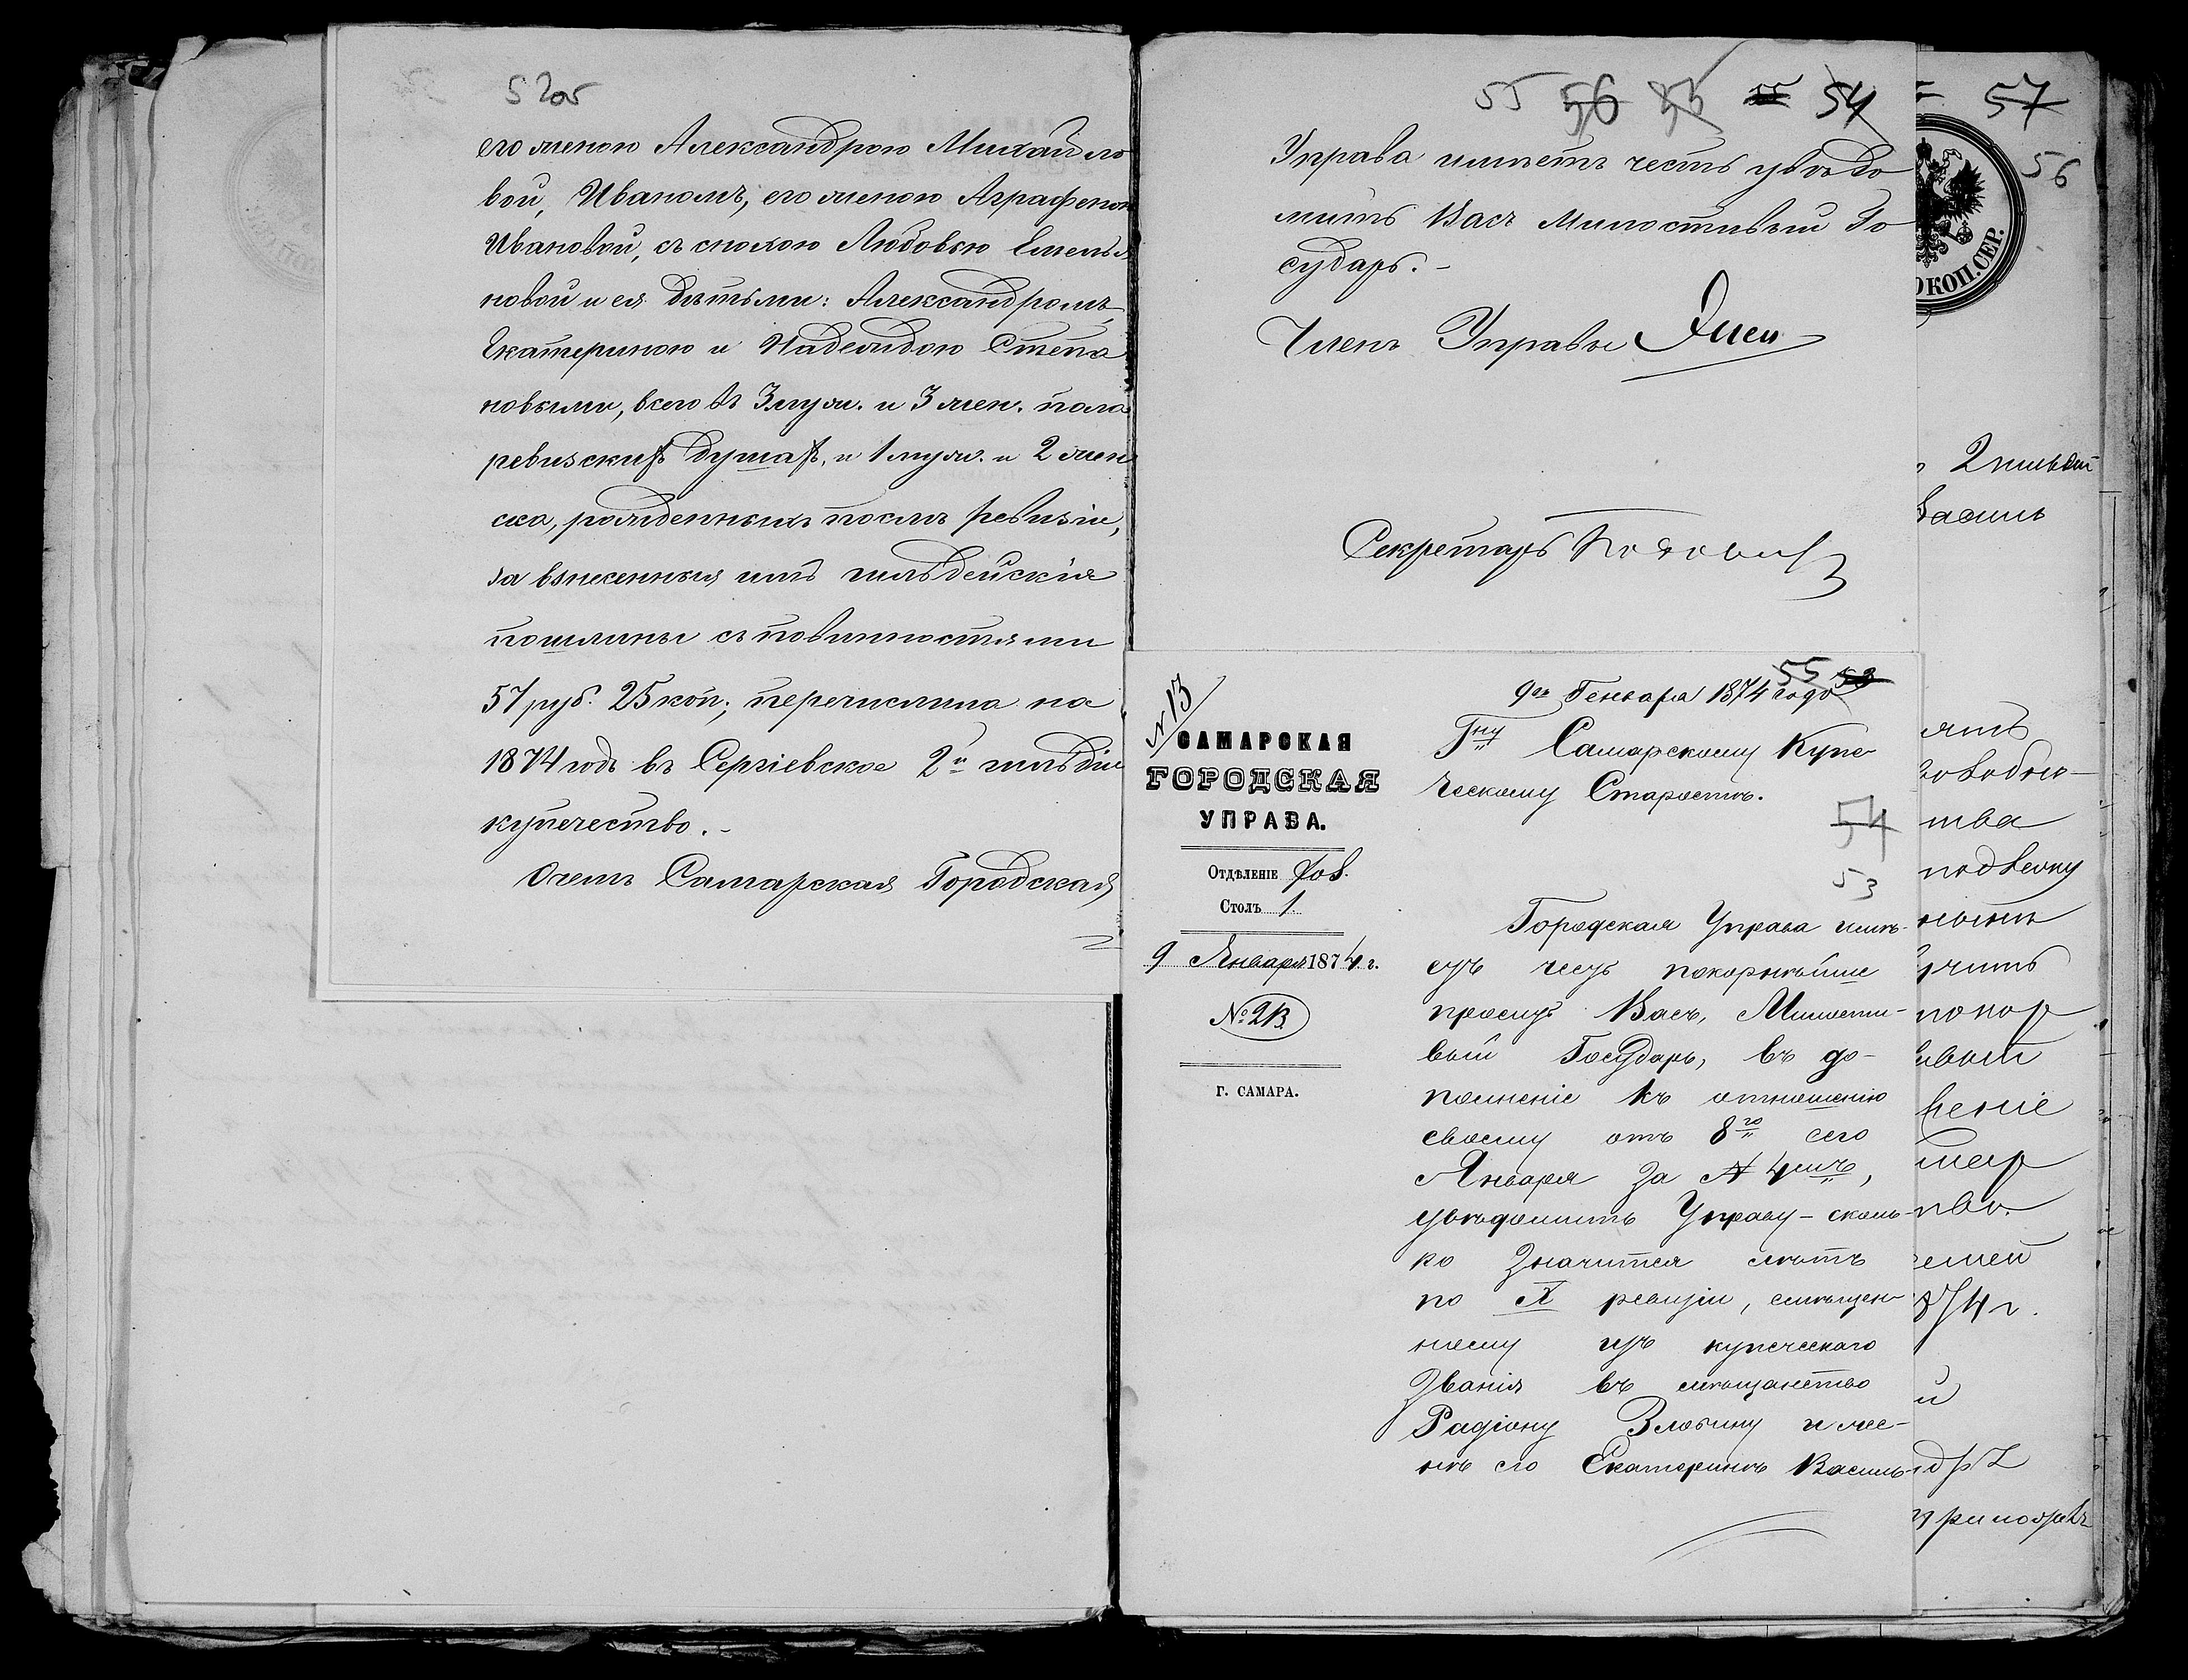 52об
его женою Александрою Михайло
вой, Иваномъ, его женою Аграфеною
Ивановой, съ снохою Любовью Емелья
новой и ея дѣтьми: Александромъ,
Екатериною и Надеждою Степа
новыми, всего въ 3 муж. и 3 жен. пола
ревизскихъ душахъ, и 1 муж. и 2 жен
ска, рожденныхъ послѣ ревизіи,
за взнесенныя имъ гильдейскія
пошлины съ повинностями
57 руб. 25 коп; перечислила на
1874 годъ въ Сергіевское 2й гильдіи
купечество.-
О чемъ Самарская Городская
55 56 54
Управа имѣетъ честь увѣдо
мить Васъ Милостивый Го
сударь.-
Членъ Управы
Секретарь
N 13
САМАРСКАЯ
ГОРОДСКАЯ
УПРАВА.
Отдѣленіе
Столъ 1.
9 Января 1874 г.
№ 213
Г. САМАРА.
55 53
9го Генваря 1874 года
Гну Самарскому Купе
ческому Старостѣ.
54
53
Городская Управа имѣ-
етъ честь покорнѣйше
просить Васъ, Милости-
вый Государь, въ до-
полненіе къ отношенію
своему отъ 8го сего
Января за N 4мъ,
увѣдомить Управу - сколь-
ко значится лѣтъ
по X ревизіи, смѣщен-
ному изъ купеческаго
званія въ мѣщанство
Радіону Злобину и же-
нѣ его Екатеринѣ Василь-
57
56
КОП.СЕР.
2 гильдіи
Василь
ять
тва
чить
покор
ивый
шеніе
емей
874 г.